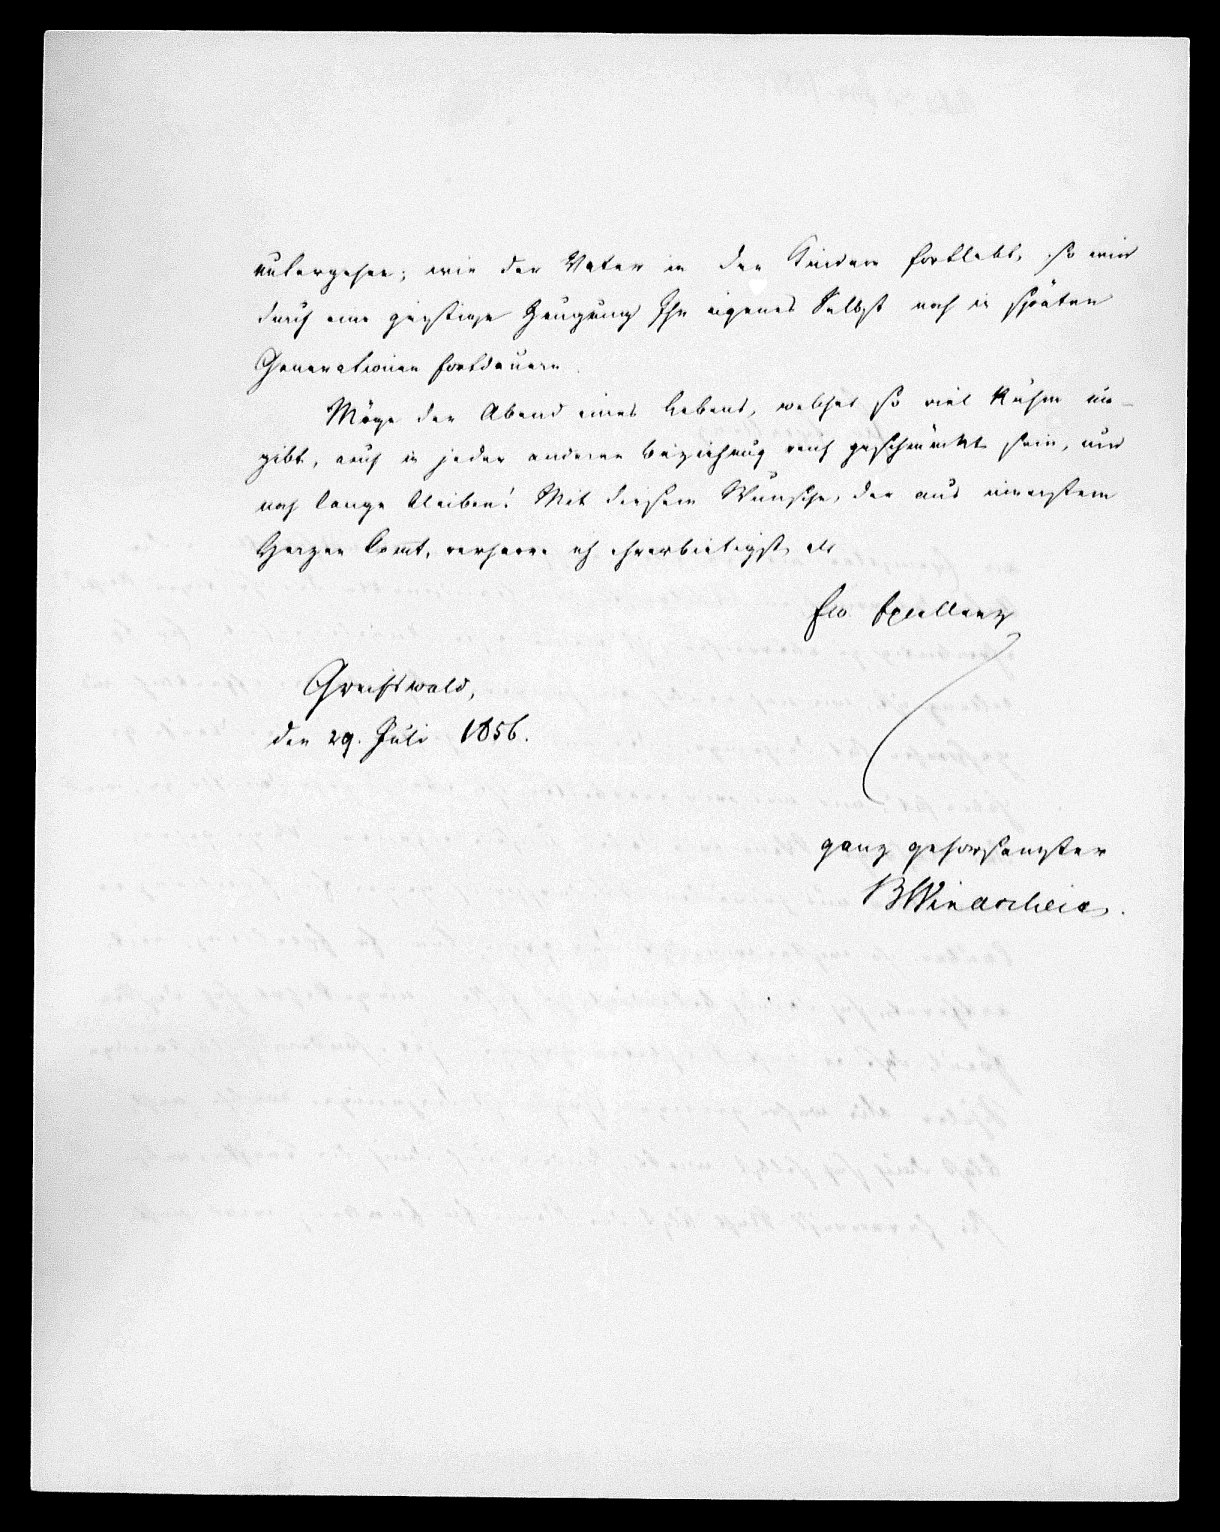 untergehen; wie der Vater in den Kindern fortlebt, so wird
durch eine geistige Zeugung Ihr eigenes Selbst noch in späten
Generationen fortdauern.
Möge der Abend eines Lebens, welches so viel Ruhm um-
gibt, auch in jeder anderen Beziehung reich geschmückt sein, und
noch lange bleiben! Mit diesem Wunsche, der aus innerstem
Herzen komt, verharre ich ehrerbietigst als
Ew. Excellenz
Greifswald,
den 29. Juli 1856.
ganz gehorsamster
BWindscheid.